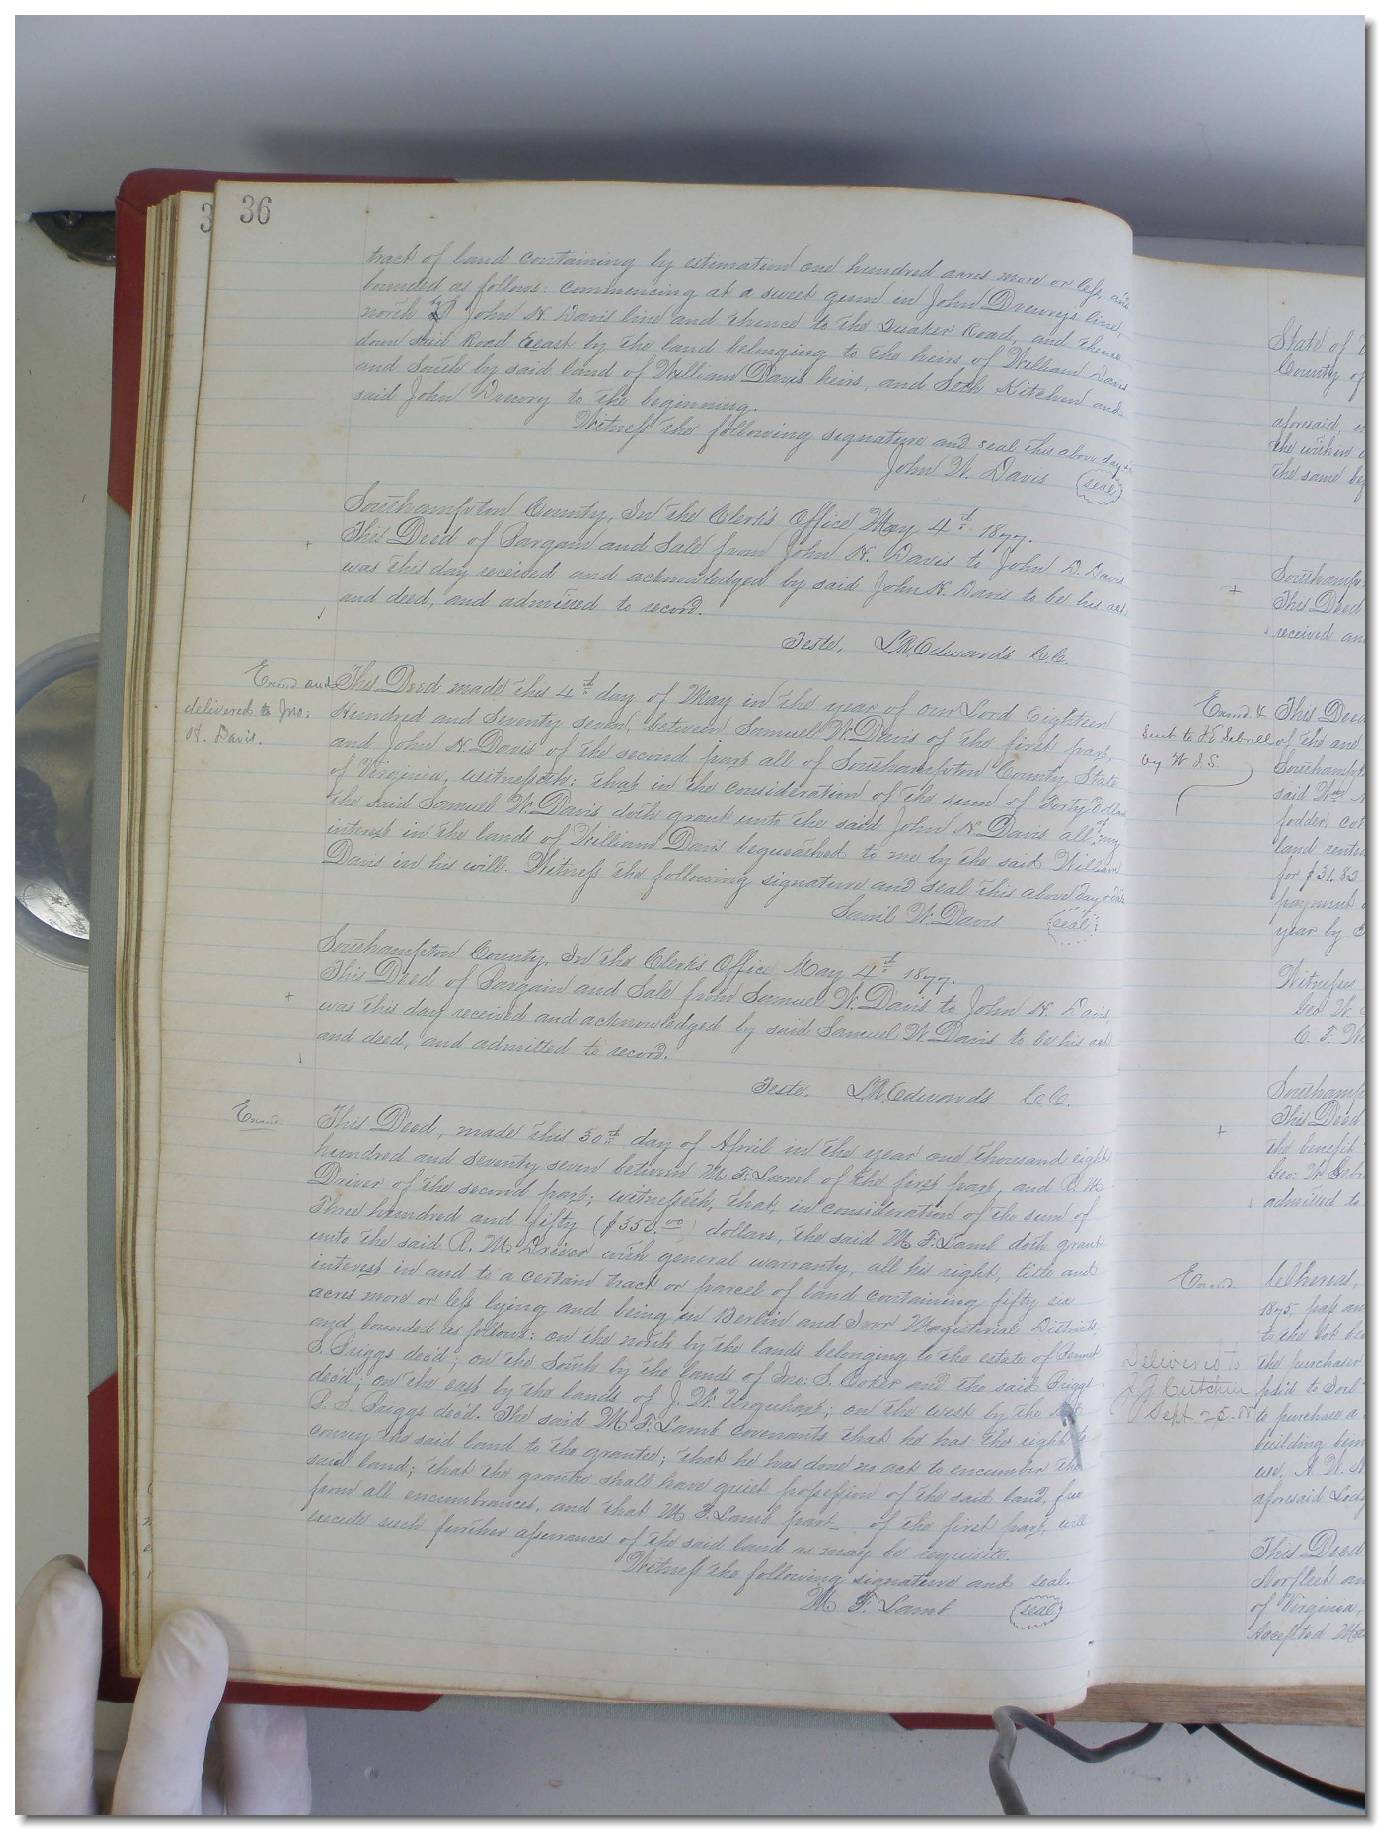 3
36
tract of land containing by estimation one hundred acres more or less and
bounded as follows: commencing at a sweet gum in John Drewrys line,
north John N. Davis line and thence to the Quaker Road, and thence
down said Road East by the land belonging to the heirs of William Davis
and South by said land of William Davis heirs, and Seth Kitchen and
said John Drewry to the beginning.
Witness the following signature and seal this above day &
John N. Davis (seal)
Southampton County, In the Clerk's Office May 4th 1877.
This Deed of Bargain and Sale from John N. Davis to John D. Davis
was this day received and acknowledged by said John N. Davis to be his act
and deed, and admitted to record.
Teste, L.R. Edwards C.C.
Exmd and
delivered to Jno:
N. Davis.
This Deed made this 4th day of May in the year of our Lord Eighteen
Hundred and Seventy Seven, between Samuel W. Davis of the first part,
and John N. Davis of the second part all of Southampton County, State
of Virginia, witnesseth: that in the consideration of the sum of Forty Dollars
the said Samuel W. Davis doth grant unto the said John N. Davis all of my
interest in the lands of William Davis bequeathed to me by the said William
Davis in his will. Witness the following signature and seal this above day & date
Sam'l W. Davis (seal)
Southampton County, In the Clerk's Office May 4th 1877.
This Deed of Bargain and Sale from Samuel W. Davis to John N. Davis
was this day received and acknowledged by said Samuel W. Davis to be his act
and deed, and admitted to record.
Teste. L.R. Edwards C.C.
Exmd.
This Deed, made this 30th day of April in the year one thousand eight
hundred and seventy seven between M. F. Lamb of the first part, and R. M.
Driver of the second part; witnesseth, that, in consideration of the sum of
Three hundred and fifty ($350.00) dollars, the said M. F. Lamb doth grant
unto the said R. M. Driver with general warranty, all his right, title and
interest in and to a certain tract or parcel of land containing fifty six
acres more or less lying and being in Berlin and Ivor Magisterial Districts,
and bounded as follows: on the north by the lands belonging to the estate of
S. Griggs dec'd; on the South by the lands of Jno. S. Coker and the said Griggs
dec'd; on the east by the lands of J. W. Urquhart; on the west by the
P. S. Griggs dec'd. The said M. F. Lamb covenants that he has the right to
convey the said land to the grantee; that he has done no act to encumber the
said land; that the grantee shall have quiet possession of the said land, free
from all encumbrances, and that M. F. Lamb part_ of the first part, will
execute such further assurances of the said land as may be requisite.
Witness the following signature and seal.
M. F. Lamb (seal)
State of
County of
aforesaid,
the within
the same
Southamp
This Deed
received an
Exmd. &
sent to
by
This Deed
of the
Southampt
said Wm
fodder,
land rente
for $31.82
payment
year by
Witness
Geo. W.
Southamp
This Deed
the benefit
Geo. W.
admitted to
Exmd.
Whereas,
1875,
to the lot
Delivered to
Sept 25.
the purchaser
to purchase a
building
use,
aforesaid
This Deed
Norfleet
of Virginia,
Accepted